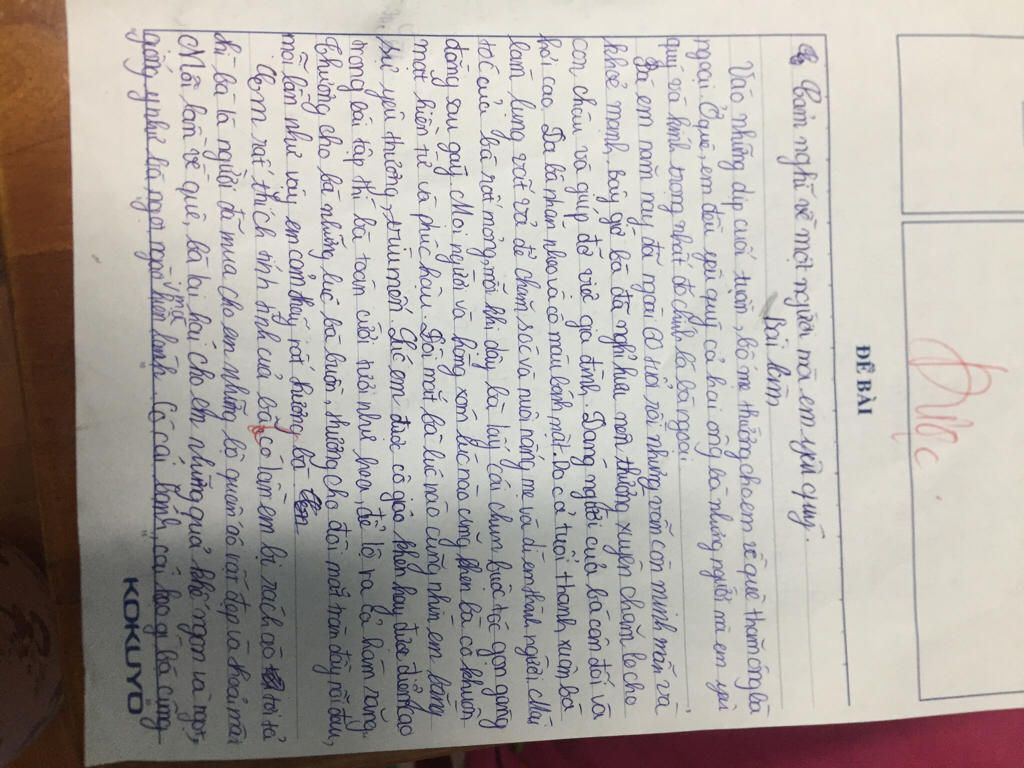 Được
ĐỀ BÀI
Cảm nghĩ về một người mà em yêu quý.
Bài làm
Vào những dịp cuối tuần, bố mẹ thường cho em về quê thăm ông bà
ngoại. Ở quê, em đều yêu quý cả hai ông bà nhưng người mà em yêu
quý và kính trọng nhất đó chính là bà ngoại.
Bà em năm nay đã ngoài 60 tuổi rồi nhưng vẫn còn minh mẫn và
khoẻ mạnh, bây giờ bà đã nghỉ hưu nên thường xuyên chăm lo cho
con, cháu và giúp đỡ việc gia đình. Dáng người của bà cân đối và
hơi cao. Da bà nhăn nheo và có màu bánh mật. Do cả tuổi thanh xuân bà
làm lụng vất vả để chăm sóc và nuôi nấng mẹ và dì em thành người. Mái
tóc của bà rất mỏng, mỗi khi dậy bà lấy cái chun buộc tóc gọn gàng
đằng sau gáy. Mọi người và hàng xóm lúc nào cũng khen bà có khuôn
mặt hiền từ và phúc hậu. Đôi mắt bà lúc nào cũng nhìn em bằng
sự yêu thương, trìu mến. Lúc em được cô giáo khen hay được điểm cao
trong bài tập thì bà toàn cười nửa như hoa, để lộ ra cả hàm răng.
Nhưng cho bà những lúc bà buồn, thương cho đôi mắt tràn đầy rồi đau,
mỗi lần như vậy em cảm thấy rất thương bà
Em rất thích tính tình của bà, có lần em bị rách áo tơi tả
thì bà là người đã mua cho em những bộ quần áo rất đẹp và thoải mái
Mỗi lần về quê, bà lại hái cho em những quả khế ngon và ngọt,
giống y như bà ngoại ngồi hiền lành. Có cái bánh, cái kẹo gì bà cũng
KOKUYO